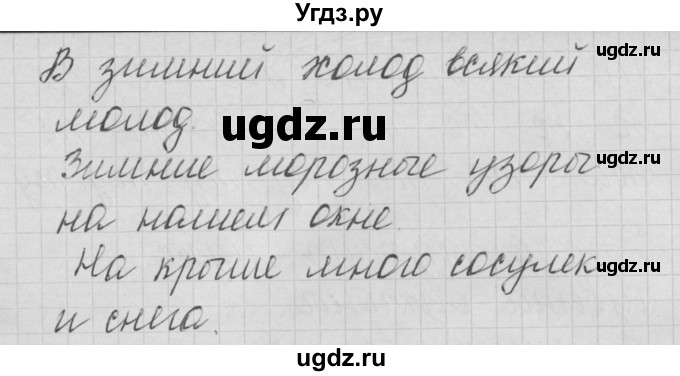 Угдз.ру
В зимний холод всякий
ugdz.ru
молод.
ugdz.ru
Зимние морозные узоры
ugdz.ru
на нашем окне.
На крыше много сосулек
ugdz.ru
и снега.
ugdz.ru